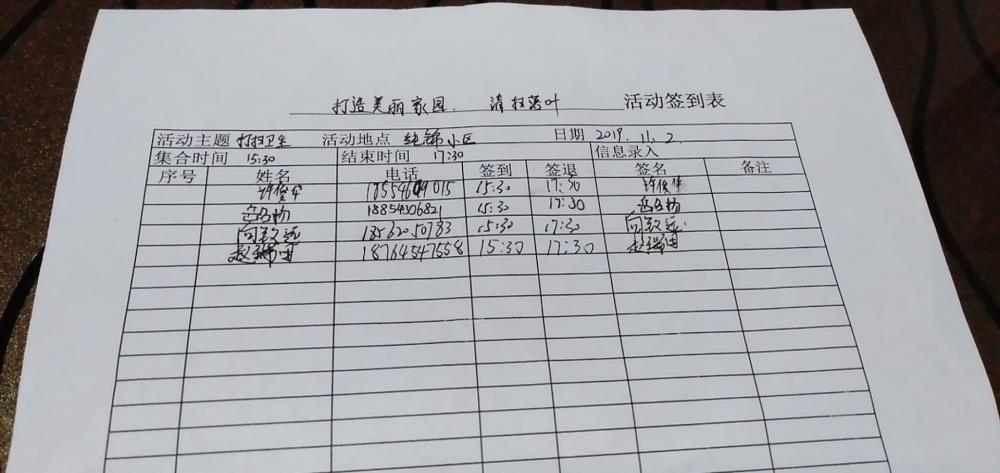 打造美丽家园. 清扫落叶 活动签到表
活动主题 打扫卫生 活动地点 纯锦小区 日期 2019. 11. 2.
集合时间 15:30 结束时间 17:30 信息录入
序号 姓名 电话 签到 签退 签名 备注
许俊华 15:30 17:30 许俊华
18854306821 15:30 17:30
18532050783 15:30 17:30
赵瑞国 18764547558 15:30 17:30 赵瑞国